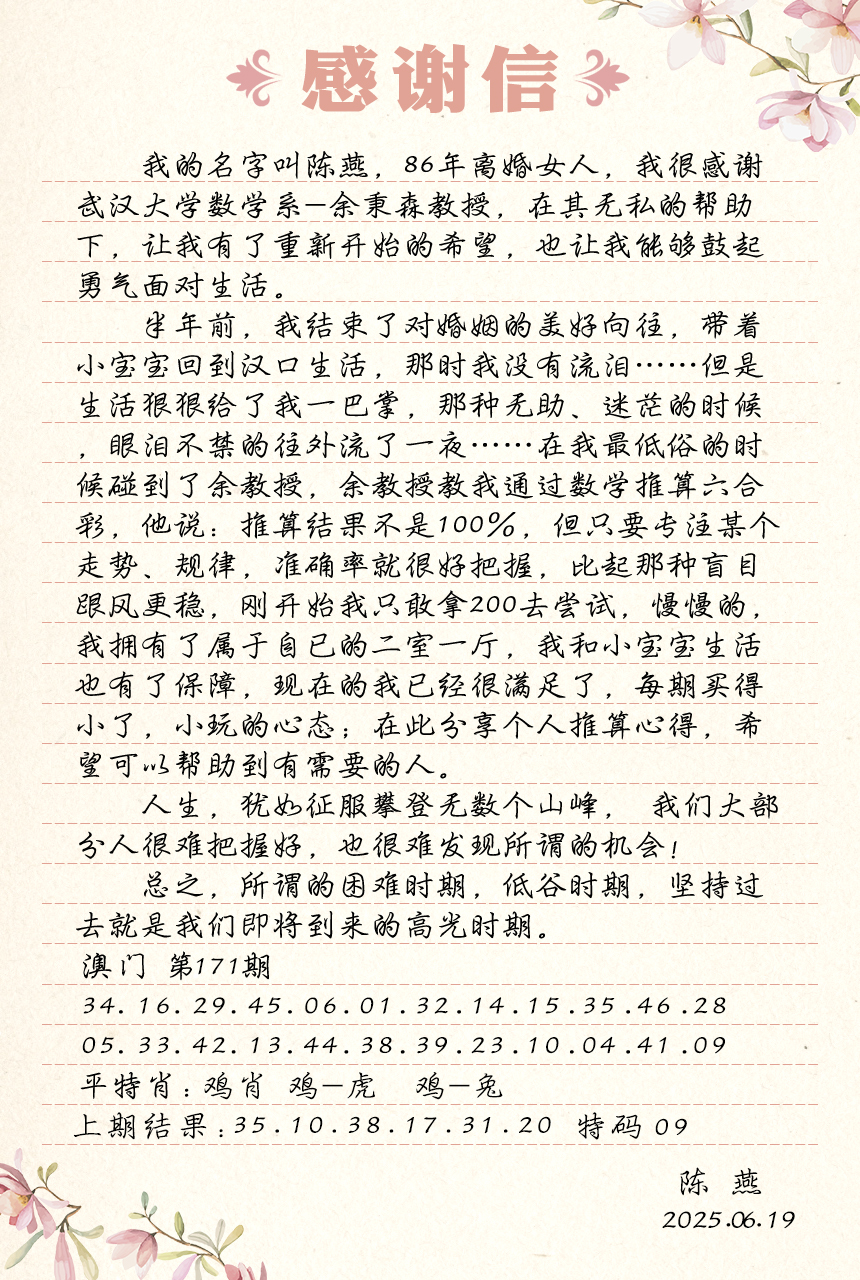 感谢信
我的名字叫陈燕，86年离婚女人，我很感谢
武汉大学数学系—余秉森教授，在其无私的帮助
下，让我有了重新开始的希望，也让我能够鼓起
勇气面对生活。
半年前，我结束了对婚姻的美好向往，带着
小宝宝回到汉口生活，那时我没有流泪……但是
生活狠狠给了我一巴掌，那种无助、迷茫的时候
，眼泪不禁的往外流了一夜……在我最低俗的时
候碰到了余教授，余教授教我通过数学推算六合
彩，他说：推算结果不是100%，但只要专注某个
走势、规律，准确率就很好把握，比起那种盲目
跟风更稳，刚开始我只敢拿200去尝试，慢慢的，
我拥有了属于自已的二室一厅，我和小宝宝生活
也有了保障，现在的我已经很满足了，每期买得
小了，小玩的心态；在此分享个人推算心得，希
望可以帮助到有需要的人。
人生，犹如征服攀登无数个山峰， 我们大部
分人很难把握好，也很难发现所谓的机会！
总之，所谓的困难时期，低谷时期，坚持过
去就是我们即将到来的高光时期。
澳门 第171期
34.16.29.45.06.01.32.14.15.35.46.28
05.33.42.13.44.38.39.23.10.04.41.09
平特肖：鸡肖 鸡—虎 鸡—兔
上期结果：35.10.38.17.31.20 特码 09
陈 燕
2025.06.19